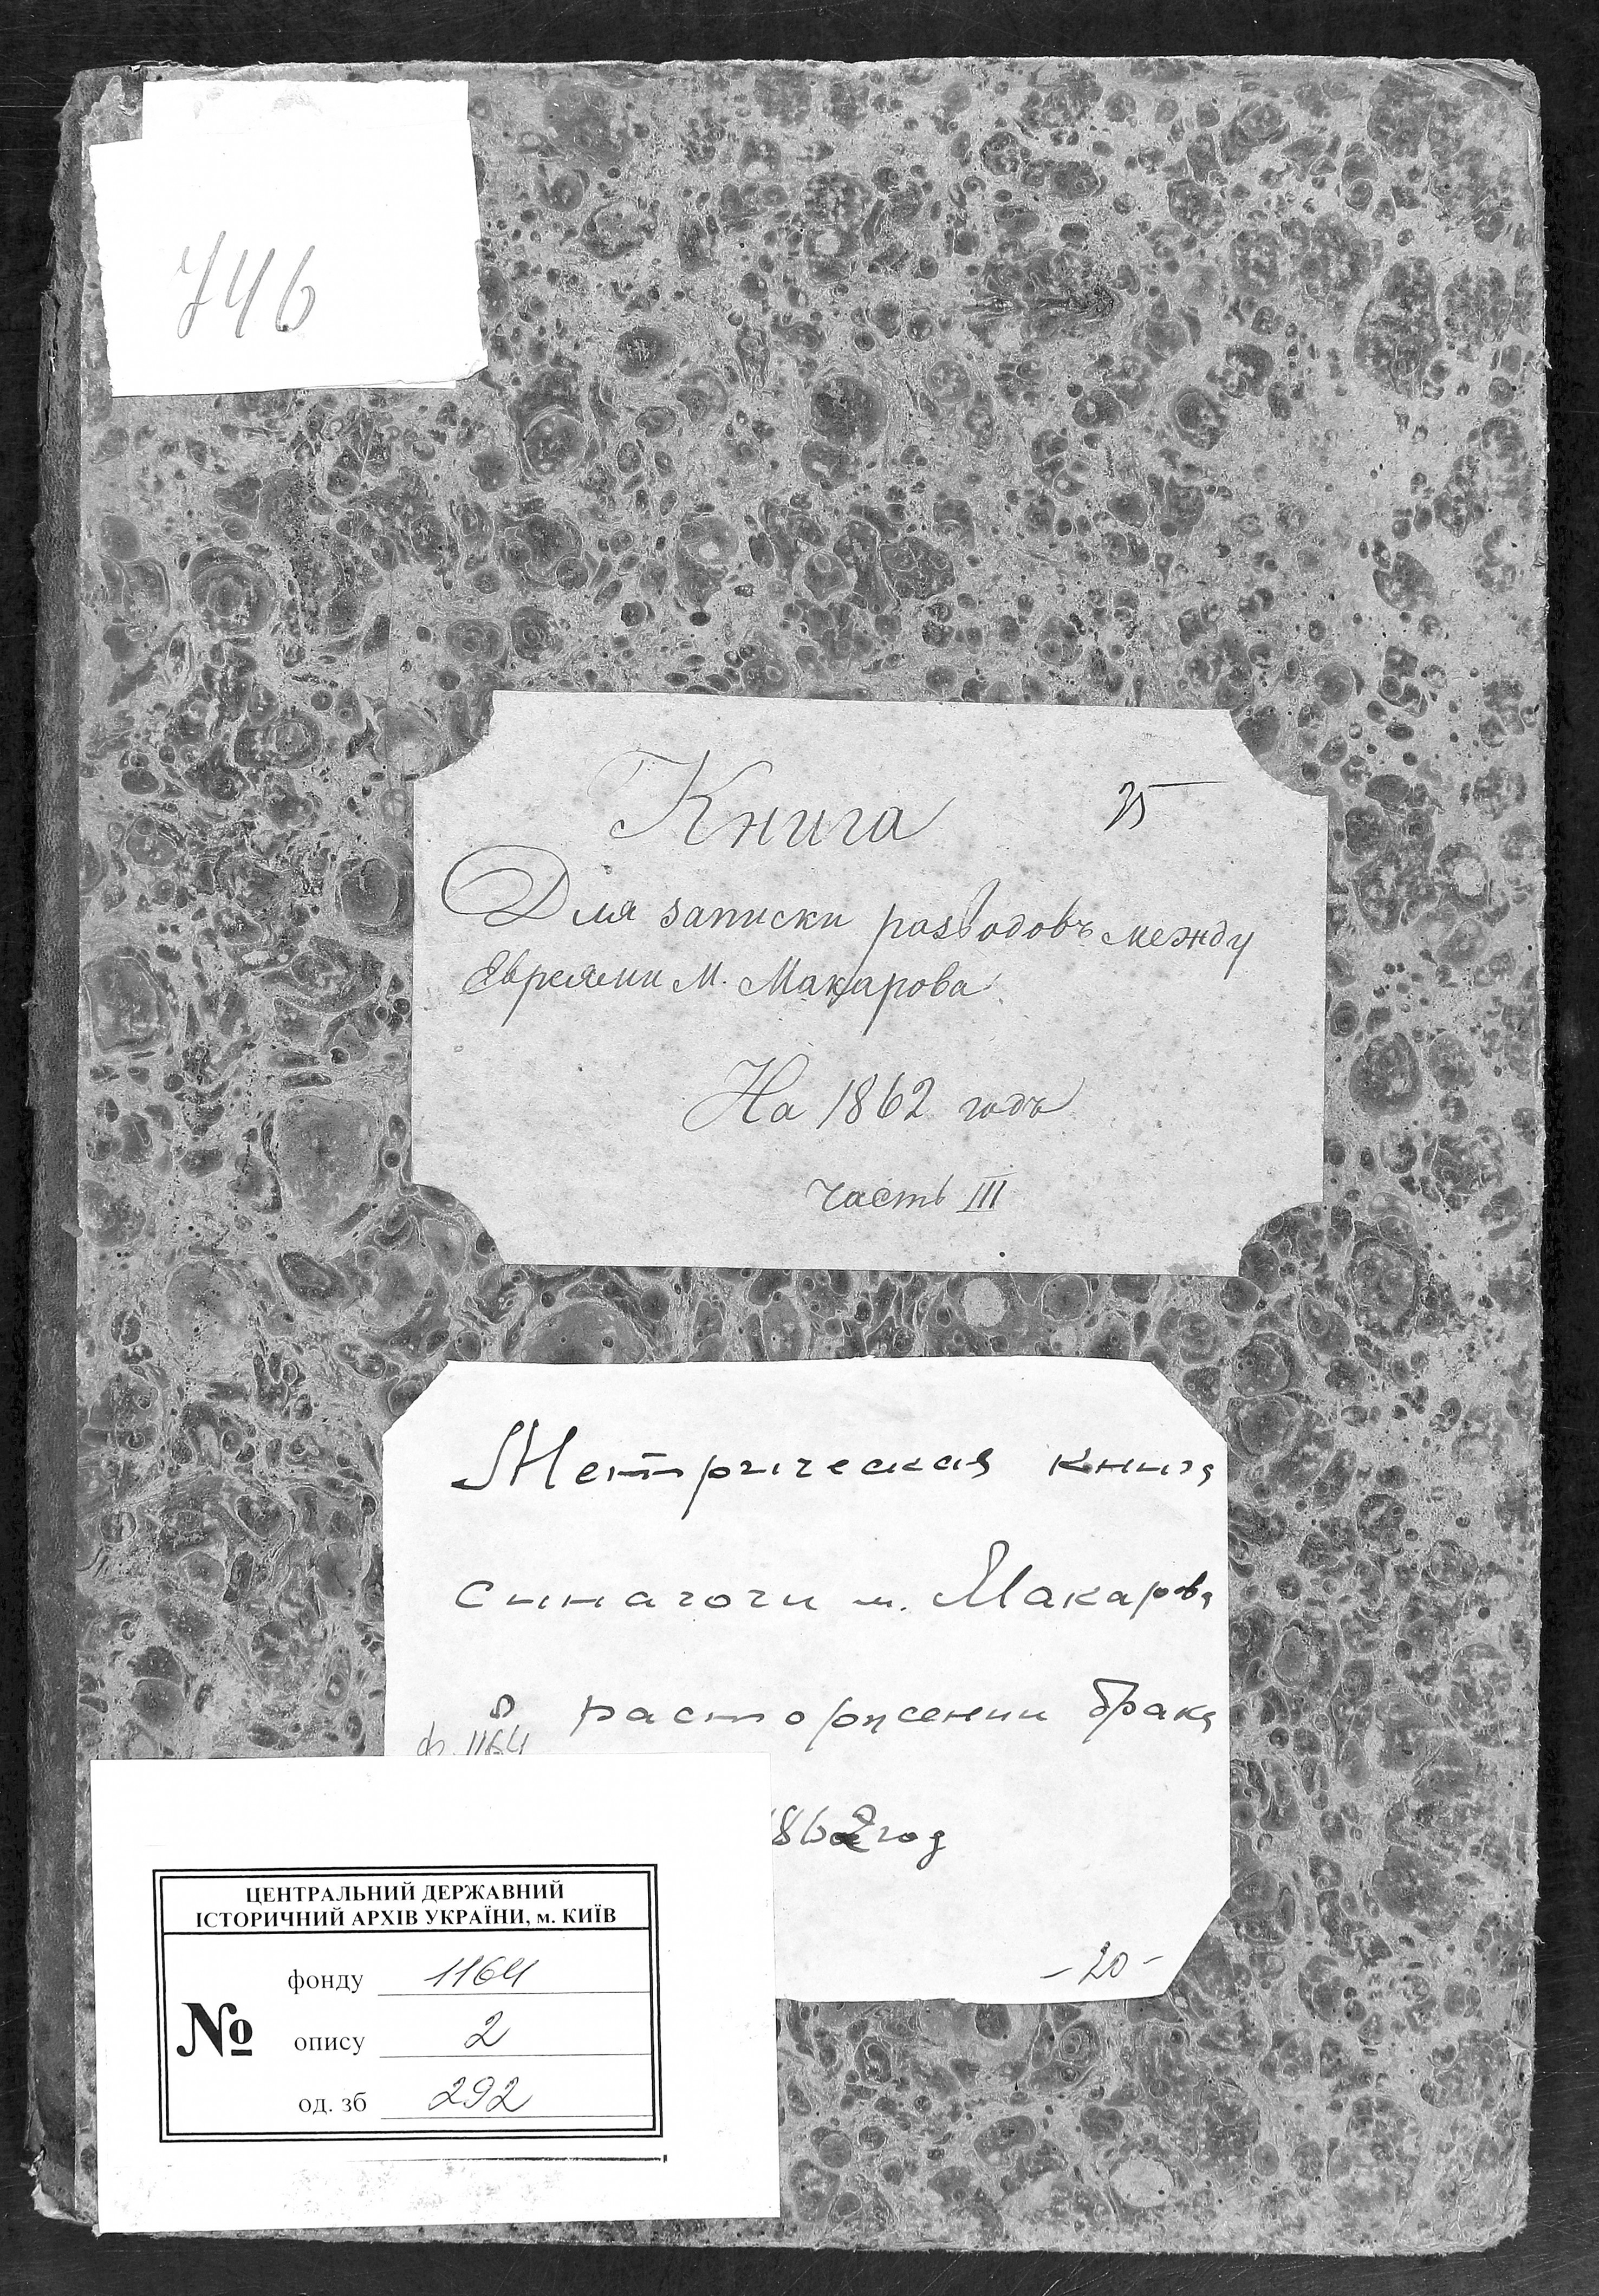 746
Книга
35
Для записки разводовъ между
Евреями М. Макарова
На 1862 годъ
часть III
Метрическая книга
синагоги м. Макарова
о расторжении брака
ф. 1164
1862 год
- 20 -
ЦЕНТРАЛЬНИЙ ДЕРЖАВНИЙ
ІСТОРИЧНИЙ АРХІВ УКРАЇНИ, м. КИЇВ
№
фонду 1164
опису 2
од. зб 292